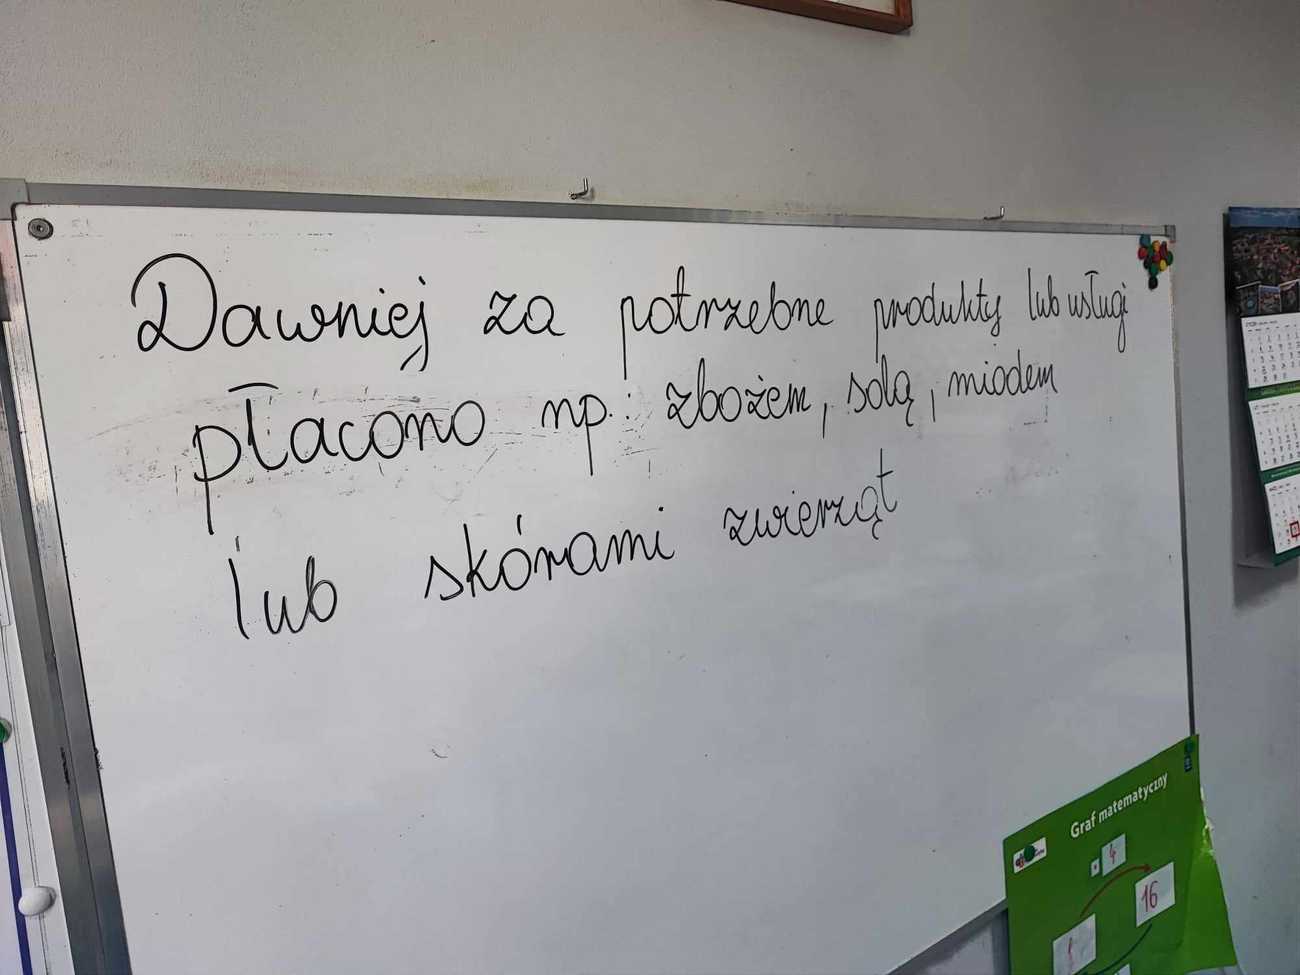 Dawniej za potrzebne produkty lub usługi
płacono np.: zbożem, solą, miodem
lub skórami zwierząt
Graf matematyczny
4
16